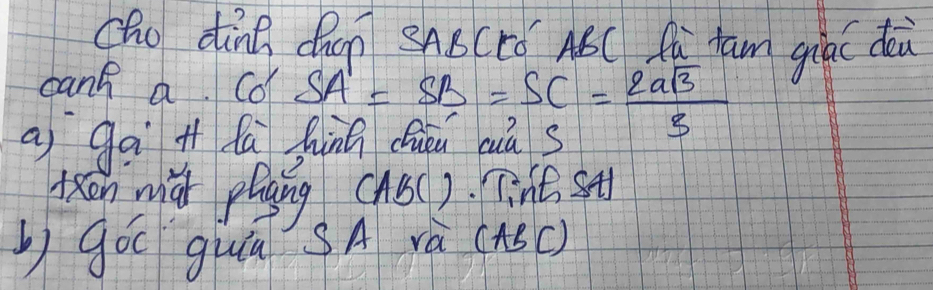 Cho đỉnh chóp SABC có ABC là tam giác đều
cạnh a. Có SA = SB = SC = 2a√3/3
a) Gọi H là hình chiếu của S
trên mặt phẳng (ABC). Tính SH
b) Góc giữa SA và (ABC)